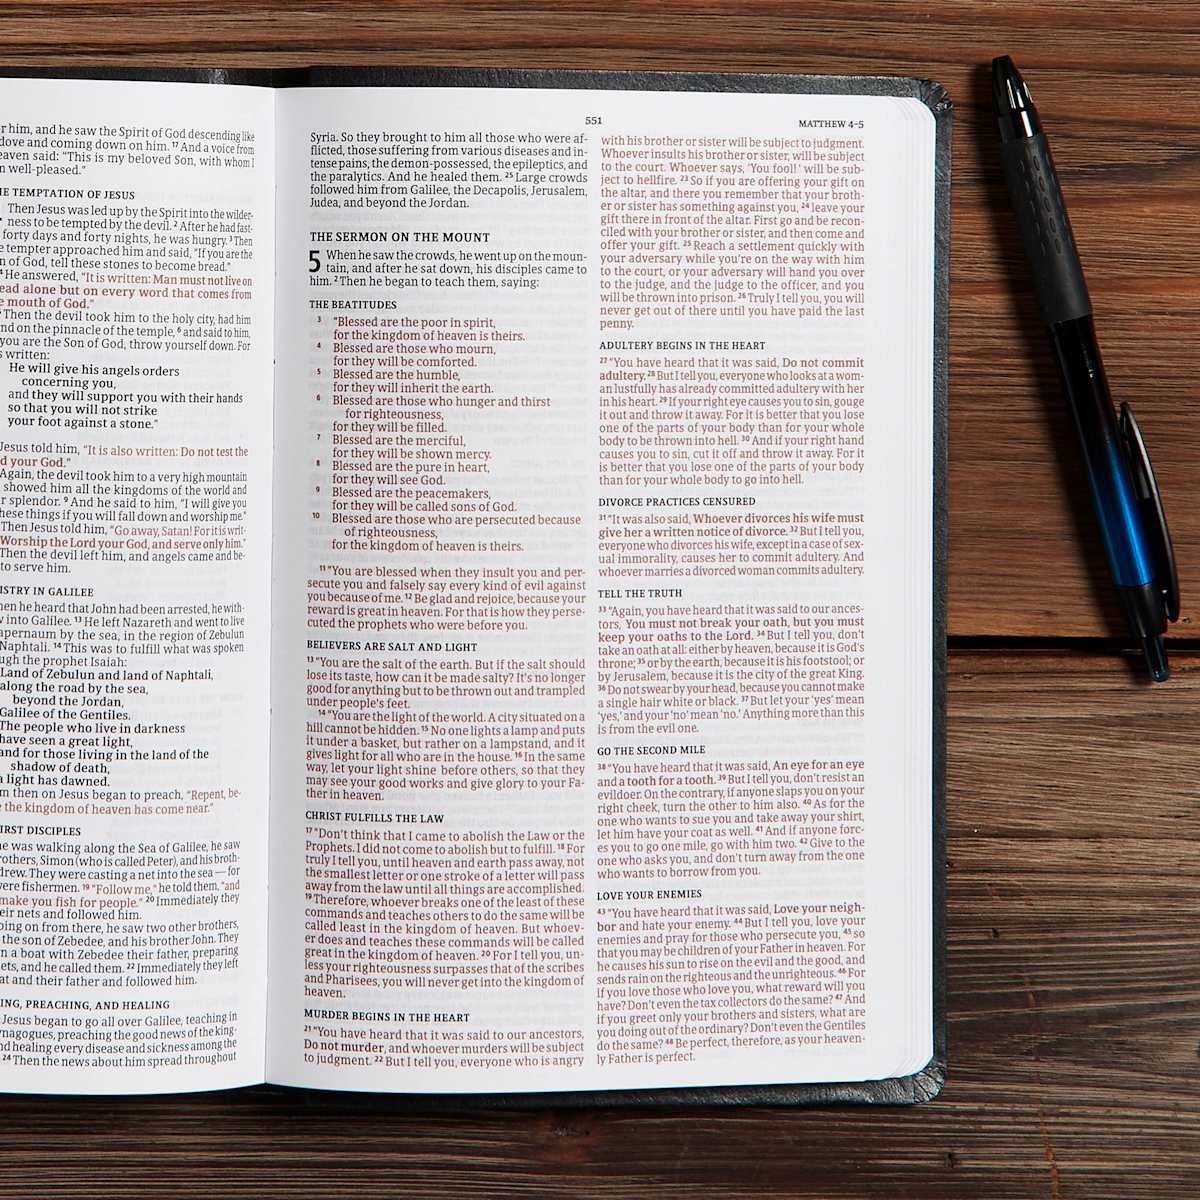 r him, and he saw the Spirit of God descending like
dove and coming down on him. 17 And a voice from
eaven said: “This is my beloved Son, with whom I
m well-pleased.”
E TEMPTATION OF JESUS
Then Jesus was led up by the Spirit into the wilder-
ness to be tempted by the devil. 2 After he had fast-
forty days and forty nights, he was hungry. 3 Then
e tempter approached him and said, “If you are the
n of God, tell these stones to become bread.”
4 He answered, “It is written: Man must not live on
ead alone but on every word that comes from
e mouth of God.”
5 Then the devil took him to the holy city, had him
nd on the pinnacle of the temple, 6 and said to him,
you are the Son of God, throw yourself down. For
s written:
He will give his angels orders
concerning you,
and they will support you with their hands
so that you will not strike
your foot against a stone.”
Jesus told him, “It is also written: Do not test the
d your God.”
Again, the devil took him to a very high mountain
showed him all the kingdoms of the world and
r splendor. 9 And he said to him, “I will give you
hese things if you will fall down and worship me.”
Then Jesus told him, “Go away, Satan! For it is writ-
Worship the Lord your God, and serve only him.”
Then the devil left him, and angels came and be-
to serve him.
ISTRY IN GALILEE
hen he heard that John had been arrested, he with-
w into Galilee. 13 He left Nazareth and went to live
apernaum by the sea, in the region of Zebulun
Naphtali. 14 This was to fulfill what was spoken
ugh the prophet Isaiah:
Land of Zebulun and land of Naphtali,
along the road by the sea,
beyond the Jordan,
Galilee of the Gentiles.
The people who live in darkness
have seen a great light,
and for those living in the land of the
shadow of death,
a light has dawned.
m then on Jesus began to preach, “Repent, be-
e the kingdom of heaven has come near.”
IRST DISCIPLES
he was walking along the Sea of Galilee, he saw
rothers, Simon (who is called Peter), and his broth-
drew. They were casting a net into the sea — for
were fishermen. 19 “Follow me,” he told them, “and
make you fish for people.” 20 Immediately they
eir nets and followed him.
oing on from there, he saw two other brothers,
the son of Zebedee, and his brother John. They
n a boat with Zebedee their father, preparing
ets, and he called them. 22 Immediately they left
at and their father and followed him.
ING, PREACHING, AND HEALING
Jesus began to go all over Galilee, teaching in
ynagogues, preaching the good news of the king-
nd healing every disease and sickness among the
24 Then the news about him spread throughout
551
MATTHEW 4–5
Syria. So they brought to him all those who were af-
flicted, those suffering from various diseases and in-
tense pains, the demon-possessed, the epileptics, and
the paralytics. And he healed them. 25 Large crowds
followed him from Galilee, the Decapolis, Jerusalem,
Judea, and beyond the Jordan.
THE SERMON ON THE MOUNT
5 When he saw the crowds, he went up on the moun-
tain, and after he sat down, his disciples came to
him. 2 Then he began to teach them, saying:
THE BEATITUDES
3 “Blessed are the poor in spirit,
for the kingdom of heaven is theirs.
4 Blessed are those who mourn,
for they will be comforted.
5 Blessed are the humble,
for they will inherit the earth.
6 Blessed are those who hunger and thirst
for righteousness,
for they will be filled.
7 Blessed are the merciful,
for they will be shown mercy.
8 Blessed are the pure in heart,
for they will see God.
9 Blessed are the peacemakers,
for they will be called sons of God.
10 Blessed are those who are persecuted because
of righteousness,
for the kingdom of heaven is theirs.
11 “You are blessed when they insult you and per-
secute you and falsely say every kind of evil against
you because of me. 12 Be glad and rejoice, because your
reward is great in heaven. For that is how they perse-
cuted the prophets who were before you.
BELIEVERS ARE SALT AND LIGHT
13 “You are the salt of the earth. But if the salt should
lose its taste, how can it be made salty? It's no longer
good for anything but to be thrown out and trampled
under people's feet.
14 “You are the light of the world. A city situated on a
hill cannot be hidden. 15 No one lights a lamp and puts
it under a basket, but rather on a lampstand, and it
gives light for all who are in the house. 16 In the same
way, let your light shine before others, so that they
may see your good works and give glory to your Fa-
ther in heaven.
CHRIST FULFILLS THE LAW
17 “Don't think that I came to abolish the Law or the
Prophets. I did not come to abolish but to fulfill. 18 For
truly I tell you, until heaven and earth pass away, not
the smallest letter or one stroke of a letter will pass
away from the law until all things are accomplished.
19 Therefore, whoever breaks one of the least of these
commands and teaches others to do the same will be
called least in the kingdom of heaven. But whoev-
er does and teaches these commands will be called
great in the kingdom of heaven. 20 For I tell you, un-
less your righteousness surpasses that of the scribes
and Pharisees, you will never get into the kingdom of
heaven.
MURDER BEGINS IN THE HEART
21 “You have heard that it was said to our ancestors,
Do not murder, and whoever murders will be subject
to judgment. 22 But I tell you, everyone who is angry
with his brother or sister will be subject to judgment.
Whoever insults his brother or sister, will be subject
to the court. Whoever says, ‘You fool!’ will be sub-
ject to hellfire. 23 So if you are offering your gift on
the altar, and there you remember that your broth-
er or sister has something against you, 24 leave your
gift there in front of the altar. First go and be recon-
ciled with your brother or sister, and then come and
offer your gift. 25 Reach a settlement quickly with
your adversary while you're on the way with him
to the court, or your adversary will hand you over
to the judge, and the judge to the officer, and you
will be thrown into prison. 26 Truly I tell you, you will
never get out of there until you have paid the last
penny.
ADULTERY BEGINS IN THE HEART
27 “You have heard that it was said, Do not commit
adultery. 28 But I tell you, everyone who looks at a wom-
an lustfully has already committed adultery with her
in his heart. 29 If your right eye causes you to sin, gouge
it out and throw it away. For it is better that you lose
one of the parts of your body than for your whole
body to be thrown into hell. 30 And if your right hand
causes you to sin, cut it off and throw it away. For it
is better that you lose one of the parts of your body
than for your whole body to go into hell.
DIVORCE PRACTICES CENSURED
31 “It was also said, Whoever divorces his wife must
give her a written notice of divorce. 32 But I tell you,
everyone who divorces his wife, except in a case of sex-
ual immorality, causes her to commit adultery. And
whoever marries a divorced woman commits adultery.
TELL THE TRUTH
33 “Again, you have heard that it was said to our ances-
tors, You must not break your oath, but you must
keep your oaths to the Lord. 34 But I tell you, don't
take an oath at all: either by heaven, because it is God's
throne; 35 or by the earth, because it is his footstool; or
by Jerusalem, because it is the city of the great King.
36 Do not swear by your head, because you cannot make
a single hair white or black. 37 But let your ‘yes’ mean
‘yes,’ and your ‘no’ mean ‘no.’ Anything more than this
is from the evil one.
GO THE SECOND MILE
38 “You have heard that it was said, An eye for an eye
and a tooth for a tooth. 39 But I tell you, don't resist an
evildoer. On the contrary, if anyone slaps you on your
right cheek, turn the other to him also. 40 As for the
one who wants to sue you and take away your shirt,
let him have your coat as well. 41 And if anyone forc-
es you to go one mile, go with him two. 42 Give to the
one who asks you, and don't turn away from the one
who wants to borrow from you.
LOVE YOUR ENEMIES
43 “You have heard that it was said, Love your neigh-
bor and hate your enemy. 44 But I tell you, love your
enemies and pray for those who persecute you, 45 so
that you may be children of your Father in heaven. For
he causes his sun to rise on the evil and the good, and
sends rain on the righteous and the unrighteous. 46 For
if you love those who love you, what reward will you
have? Don't even the tax collectors do the same? 47 And
if you greet only your brothers and sisters, what are
you doing out of the ordinary? Don't even the Gentiles
do the same? 48 Be perfect, therefore, as your heaven-
ly Father is perfect.